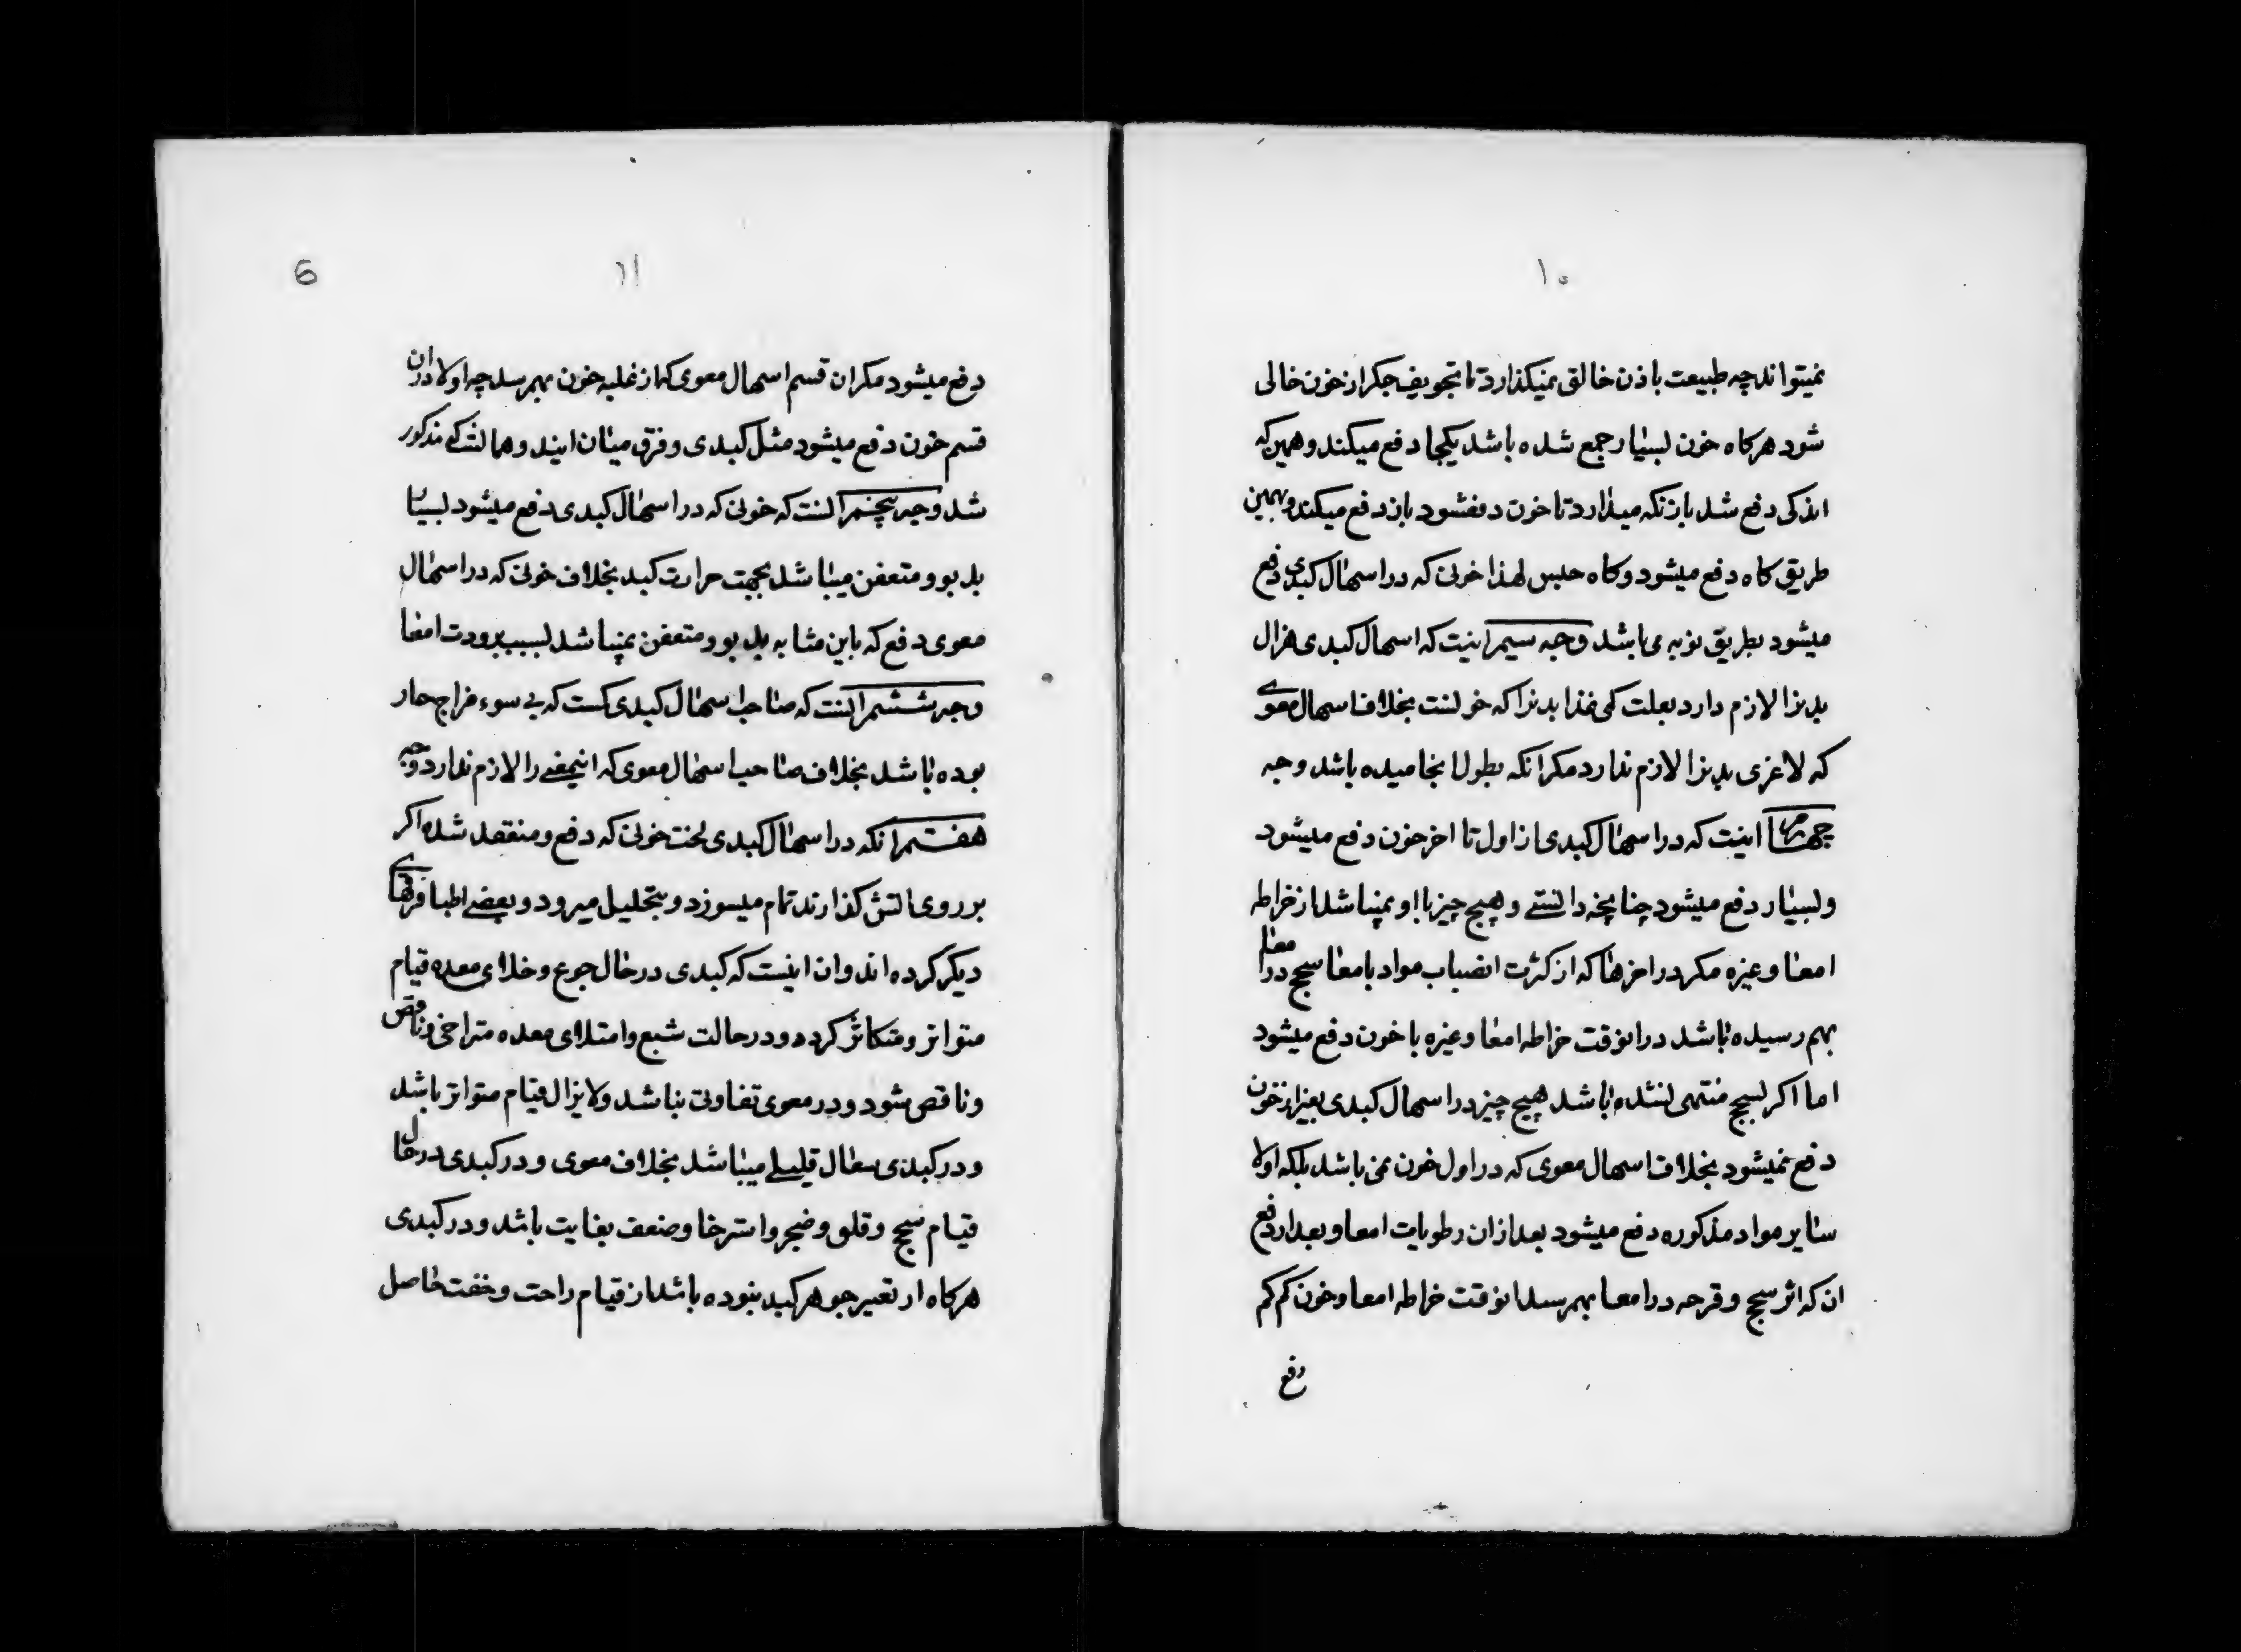 ۱۰
نمیتواند چه طبیعت باذن خالق نمیکذارد تا تجویف جکر از خون خالی
شود هرکاه خون بسیار جمع شده باشد یکجا دفع میکند و همین که
اندکی دفع شد باز نکه میدارد تا خون دفعشود بان دفع میکند و بهمین
طریق کاه دفع میشود و کاه حبس لهذا خونی که در اسهال کبدی دفع
میشود بطریق نوبه می باشد وجه سیم اینست که اسهال کبدی هزال
بدنرا لازم دارد بعلت کمی غذا بدنرا که خونست بخلاف اسهال معوی
که لاغری بدنرا لازم ندارد مکر انکه بطول انجامیده باشد وجه
چهارم اینست که در اسهال کبدی از اول تا اخر خون دفع میشود
و بسیار دفع میشود چنانچه دانستی و هیچ چیز با او نمیباشد از خراطه
امعا و غیره مکر در اخرها که از کثرت انصباب مواد بامعا سحج در امعا
بهم رسیده باشد در انوقت خراطه امعا و غیره با خون دفع میشود
اما اکر بسحج منتهی نشده باشد هیچ چیز در اسهال کبدی بغیر از خون
دفع نمیشود بخلاف اسهال معوی که در اول خون نمی باشد بلکه اولا
سایر مواد مذکوره دفع میشود بعد از ان رطوبات امعا و بعد از دفع
ان که اثر سحج و قرحه در امعا بهمرسد انوقت خراطه امعا و خون کم کم
دفع
۱۱
6
دفع میشود مکر ان قسم اسهال معوی که از غلبه خون بهمرسد چه اولا در ان
قسم خون دفع میشود مثل کبدی و فرق میان ایند و همانست که مذکور
شد وجه پنجم انست که خونی که در اسهال کبدی دفع میشود بسیار
بد بو و متعفن میباشد بجهت حرارت کبد بخلاف خونی که در اسهال
معوی دفع که باین مثابه بد بو و متعفن نمیباشد بسبب برودت امعا
وجه ششم انست که صاحب اسهال کبدی کست که بی سوء مزاج حار
بوده باشد بخلاف صاحب اسهال معوی که اینمعنی را لازم ندارد وجه
هفتم انکه در اسهال کبدی لخت خونی که دفع و منعقد شده اکر
بر روی اتش کذارند تمام میسوزد و بتحلیل میرود و بعضی اطبا فرقهای
دیکر کرده اند و ان اینست که کبدی در حال جوع و خلای معده قیام
متواتر و متکاثر کردد و در حالت شبع و امتلای معده متراخی و ناقص
و ناقص شود و در معوی تفاوتی نباشد و لایزال قیام متواتر باشد
و در کبدی سعال قلیلی میباشد بخلاف معوی و در کبدی در حال
قیام سحج و قلق و ضجر و استرخا و ضعف بغایت باشد و در کبدی
هرکاه از تغییر جوهر کبد نبوده باشد از قیام راحت و خفت حاصل